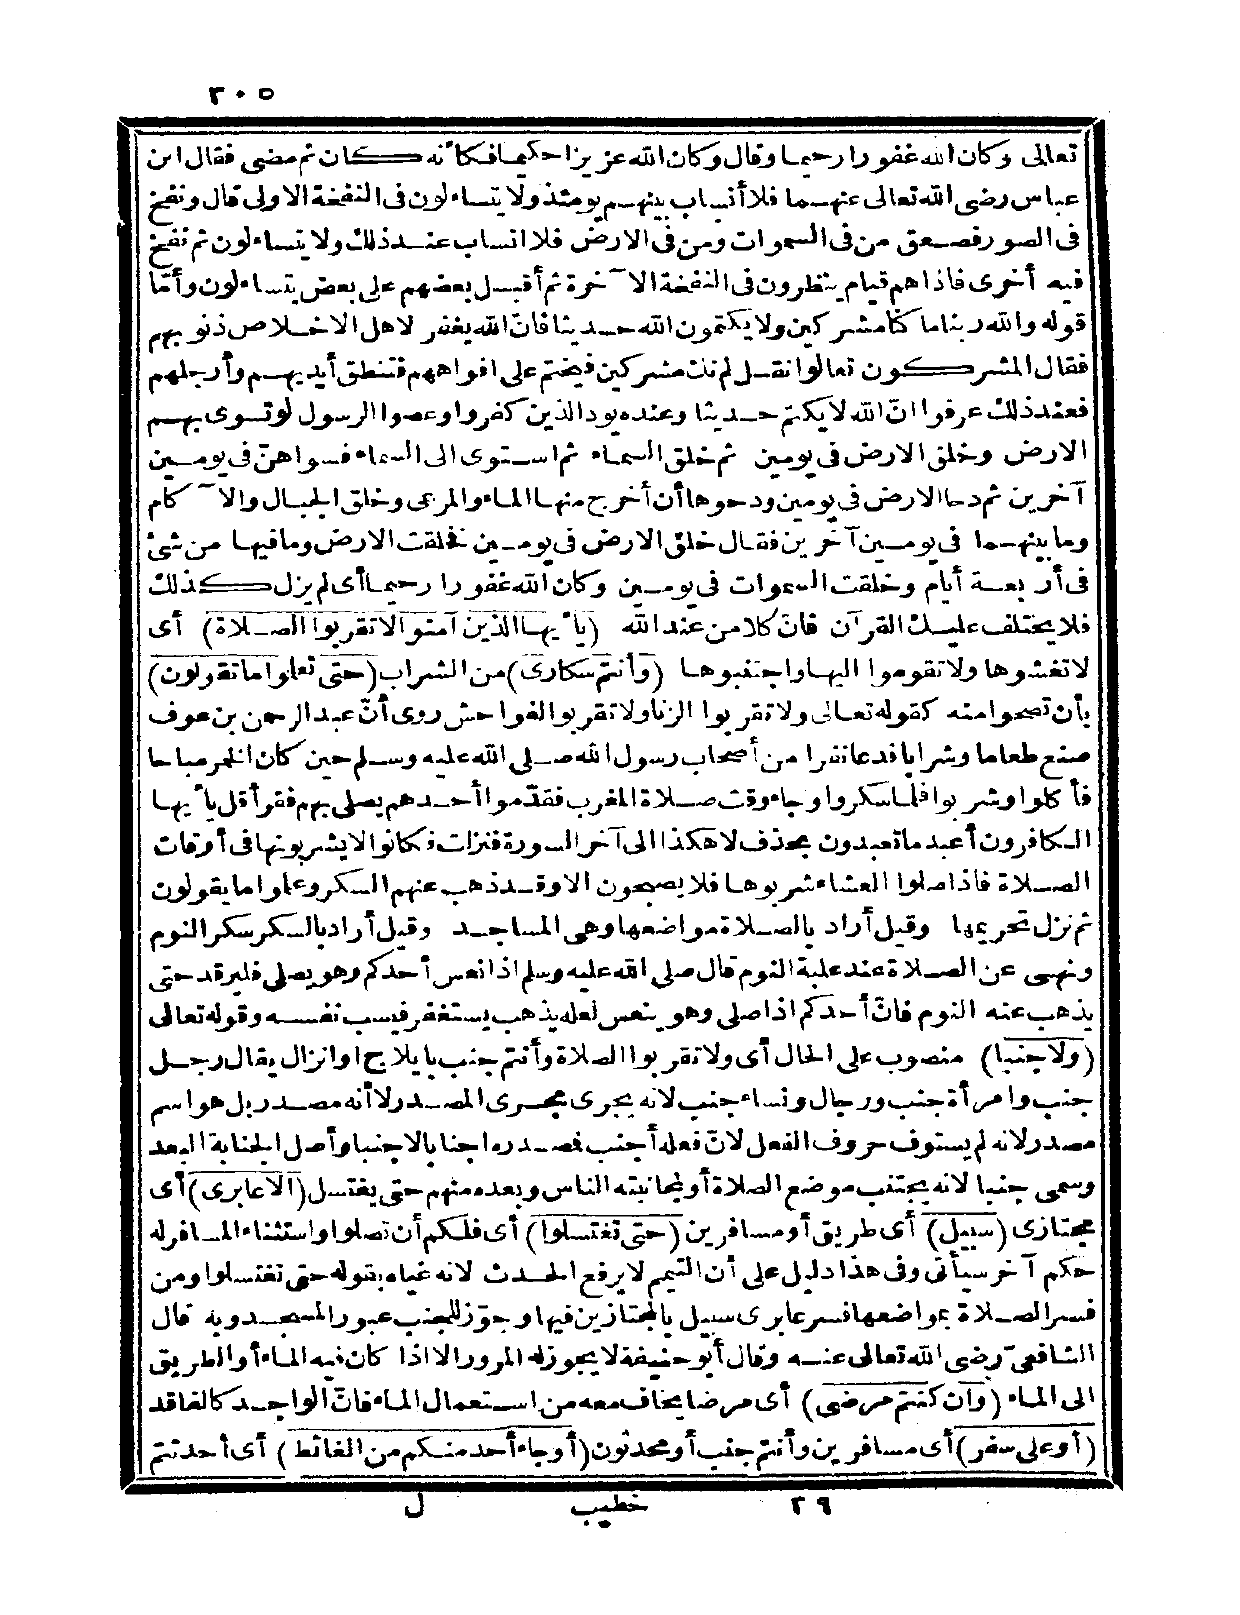 ٣٠٥
تعالى وكان الله غفورا رحيما وقال وكان الله عزيزا حكيما فكأنه كان ثم مضى فقال ابن
عباس رضى الله تعالى عنهما فلا أنساب بينهم يومئذ ولا يتساءلون فى النفخة الاولى قال ونفخ
فى الصور فصعق من فى السموات ومن فى الارض فلا انساب عند ذلك ولا يتساءلون ثم نفخ
فيه أخرى فاذا هم قيام ينظرون فى النفخة الآخرة ثم أقبل بعضهم على بعض يتساءلون وأمّا
قوله والله ربنا ما كنا مشركين ولا يكتمون الله حديثا فانّ الله يغفر لاهل الاخلاص ذنوبهم
فقال المشركون تعالوا نقل لم نك مشركين فيختم على افواههم فتنطق أيديهم وأرجلهم
فعند ذلك عرفوا انّ الله لا يكتم حديثا وعنده يود الذين كفروا وعصوا الرسول لو تسوى بهم
الارض وخلق الارض فى يومين ثم خلق السماء ثم استوى الى السماء فسواهنّ فى يومين
آخرين ثم دحا الارض فى يومين ودحوها أن أخرج منها الماء والمرعى وخلق الجبال والآكام
وما بينهما فى يومين آخرين فقال خلق الارض فى يومين فخلقت الارض وما فيها من شئ
فى أربعة أيام وخلقت السموات فى يومين وكان الله غفورا رحيما أى لم يزل كذلك
فلا يختلف عليك القرآن فانّ كلا من عند الله (يأيها الذين آمنوا لا تقربوا الصلاة) أى
لا تغشوها ولا تقوموا اليها واجتنبوها (وأنتم سكارى) من الشراب (حتى تعلموا ما تقولون)
بأن تصحوا منه كقوله تعالى ولا تقربوا الزنا ولا تقربوا الفواحش روى أنّ عبد الرحمن بن عوف
صنع طعاما وشرابا فدعا نفرا من أصحاب رسول الله صلى الله عليه وسلم حين كان الخمر مباحا
فأكلوا وشربوا فلما سكروا وجاء وقت صلاة المغرب فقدّموا أحدهم يصلى بهم فقرأ قل يأيها
الكافرون أعبد ما تعبدون بحذف لا هكذا الى آخر السورة فنزلت فكانوا لا يشربونها فى أوقات
الصلاة فاذا صلوا العشاء شربوها فلا يصبحون الا وقد ذهب عنهم السكر وعلموا ما يقولون
ثم نزل تحريمها وقيل أراد بالصلاة مواضعها وهى المساجد وقيل أراد بالسكر سكر النوم
ونهى عن الصلاة عند غلبة النوم قال صلى الله عليه وسلم اذا نعس أحدكم وهو يصلى فليرقد حتى
يذهب عنه النوم فانّ أحدكم اذا صلى وهو ينعس لعله يذهب يستغفر فيسب نفسه وقوله تعالى
(ولا جنبا) منصوب على الحال أى ولا تقربوا الصلاة وأنتم جنب بايلاج او انزال يقال رجل
جنب وامرأة جنب ورجال ونساء جنب لانه يجرى مجرى المصدر لا أنه مصدر بل هو اسم
مصدر لانه لم يستوف حروف الفعل لانّ فعله أجنب فمصدره اجنابا لا جنبا وأصل الجنابة البعد
وسمى جنبا لانه يجتنب موضع الصلاة أو لمجانبته الناس وبعده منهم حتى يغتسل (الا عابرى) أى
مجتازى (سبيل) أى طريق أو مسافرين (حتى تغتسلوا) أى فلكم أن تصلوا واستثناء المسافر له
حكم آخر سيأتى وفى هذا دليل على أن التيمم لا يرفع الحدث لانه غياه بقوله حتى تغتسلوا ومن
فسر الصلاة بمواضعها فسر عابرى سبيل بالمجتازين فيها وجوّز للجنب عبور المسجد وبه قال
الشافعىّ رضى الله تعالى عنه وقال أبو حنيفة لا يجوز له المرور الا اذا كان فيه الماء أو الطريق
الى الماء (وان كنتم مرضى) أى مرضا يخاف معه من استعمال الماء فانّ الواجد كالفاقد
(أو على سفر) أى مسافرين وأنتم جنب أو محدثون (أو جاء أحد منكم من الغائط) أى أحدثتم
٣٩ خطيب ل